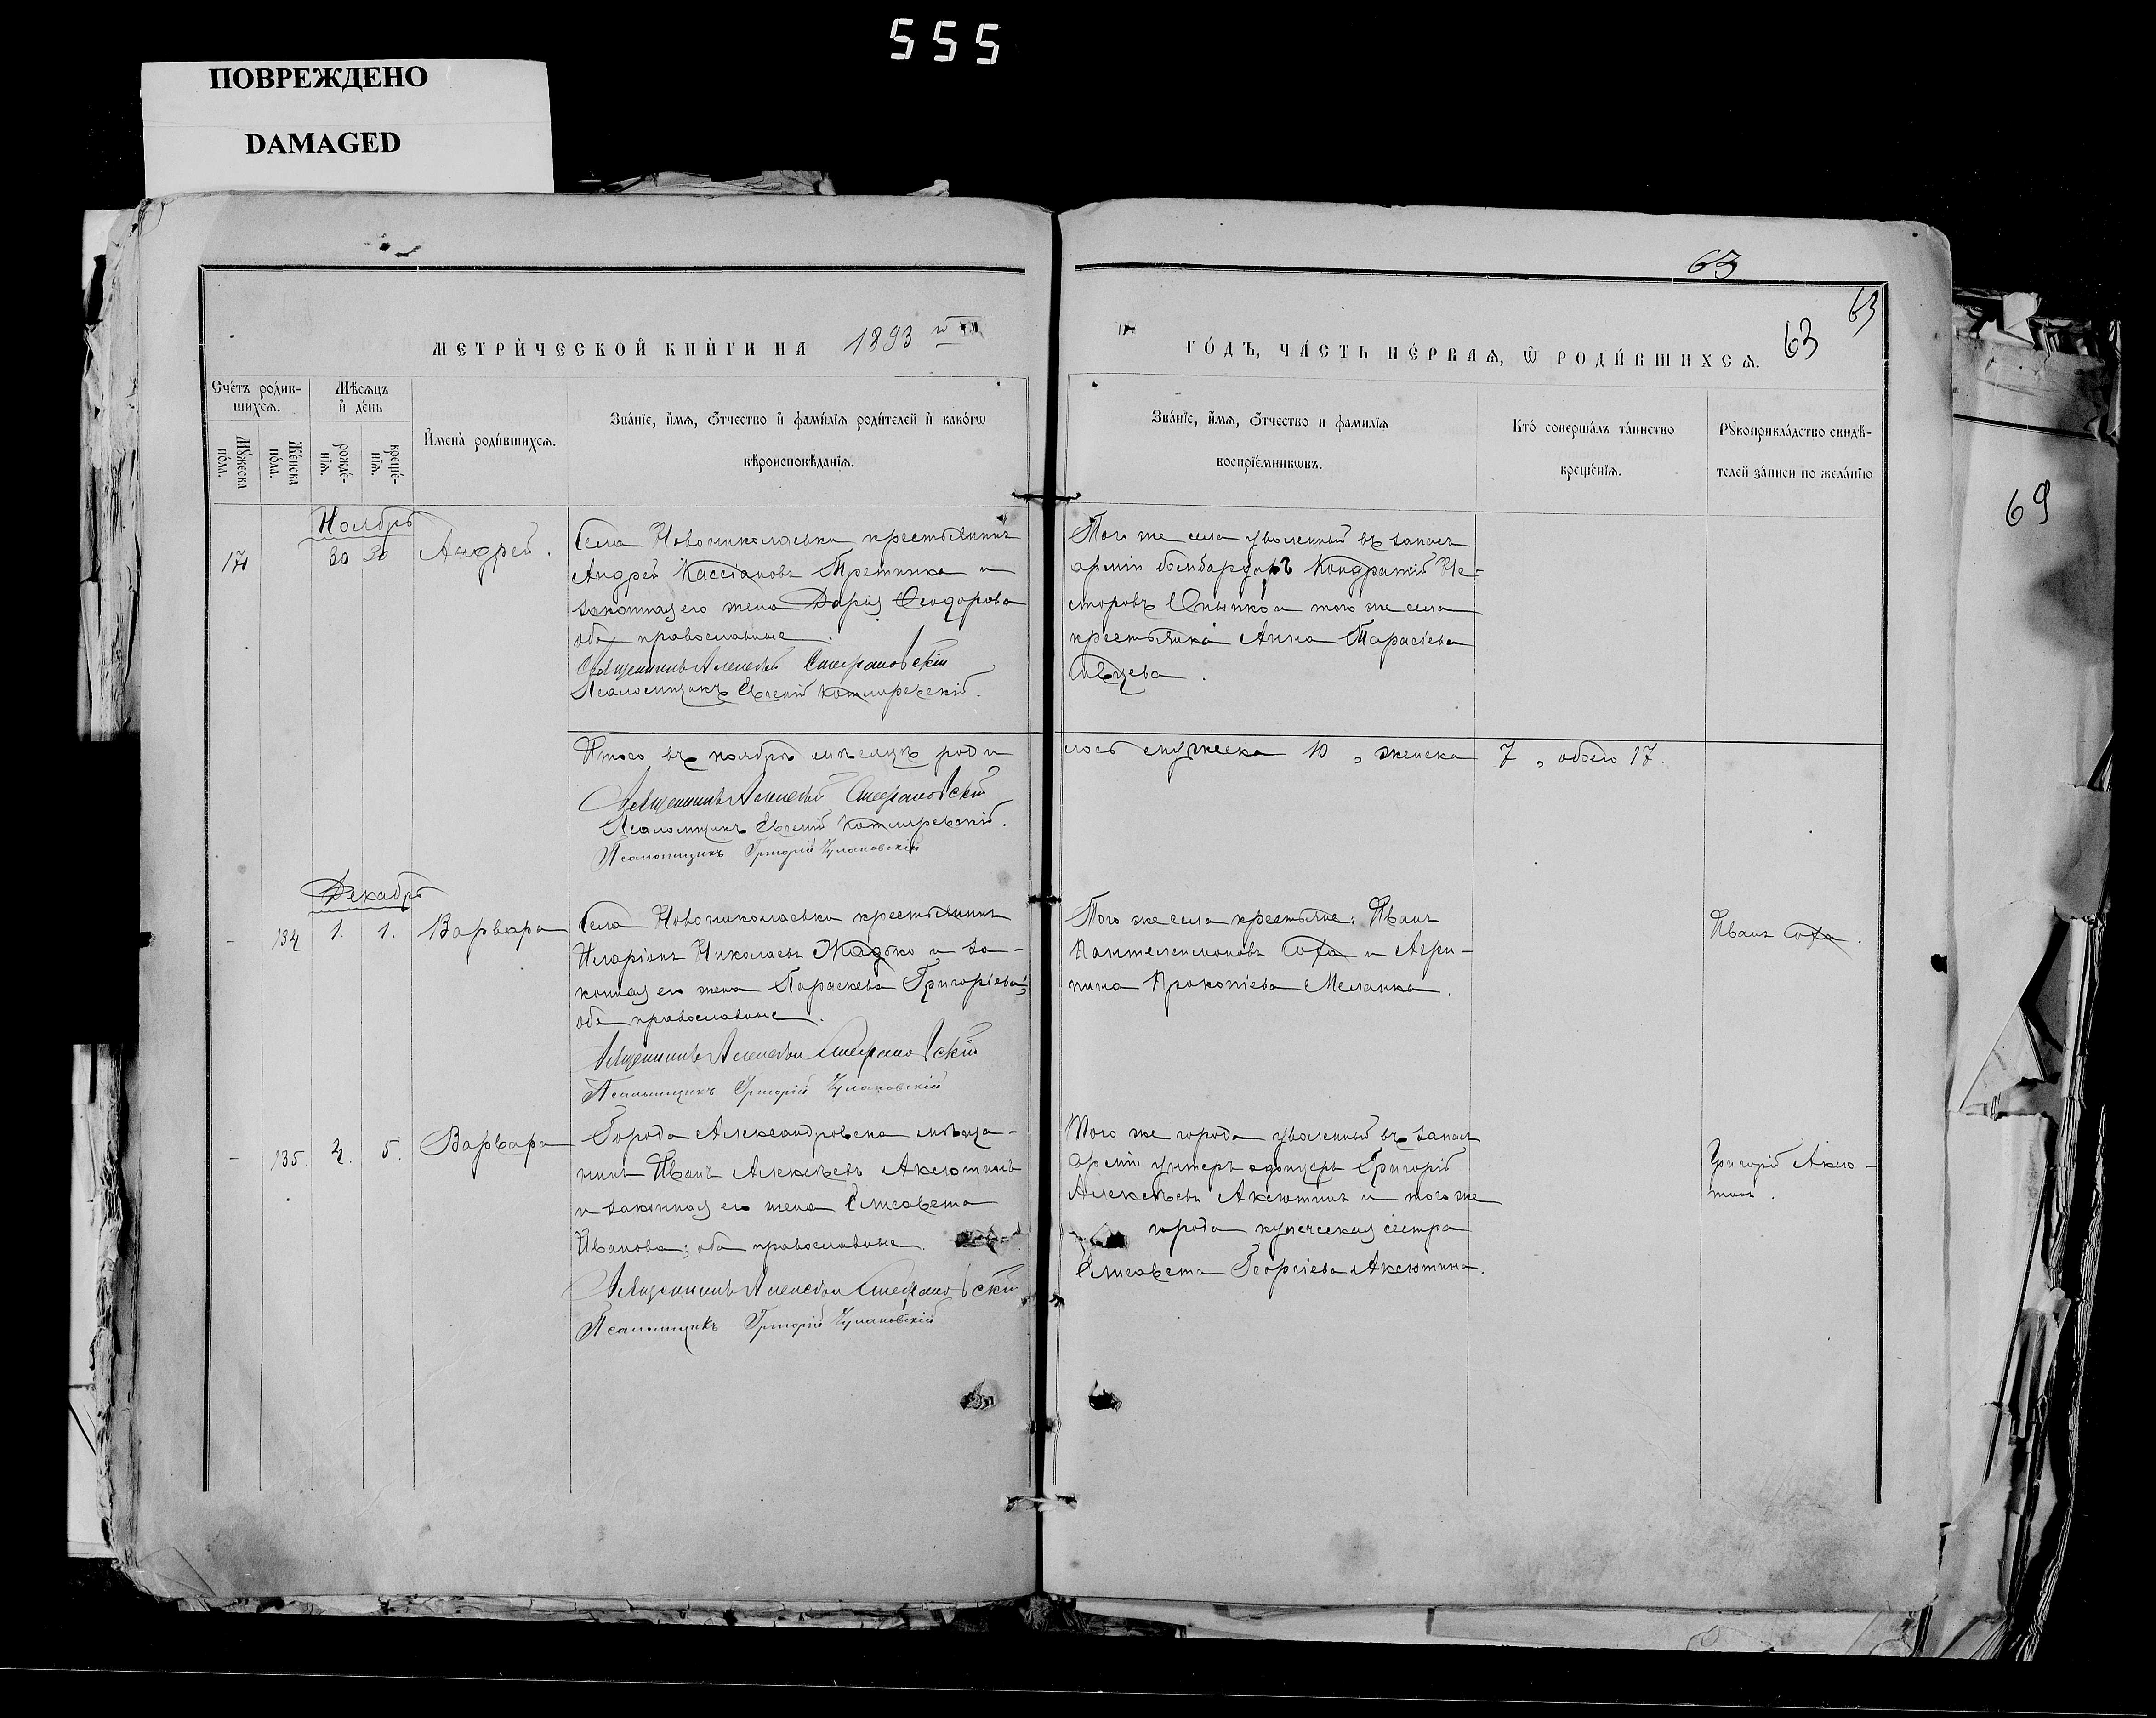 555
ПОВРЕЖДЕНО
DAMAGED
63
63
63
69
МЕТРИ́ЧЕСКОЙ КНИ́ГИ НА 1893 го
ГО́ДЪ, ЧА́СТЬ ПЕ́РВАѦ, Ѽ РОДИ́ВШИХСѦ.
Сче́тъ роди́в-
шихсѧ.
Мꙋ́жеска по́ла.
Же́нска по́ла.
Мѣ́сѧцъ
и҆ де́нь
рожде́-
нїѧ.
креще́-
нїѧ.
И҆мена̀ роди́вшихсѧ.
Зва́нїе, и҆́мѧ, ѻ҆́тчество и҆ фами́лїѧ роди́телей и҆ како́гѡ
вѣроисповѣ́данїѧ.
Зва́нїе, и҆́мѧ, ѻ҆́тчество и фами́лїѧ
воспрїе́мникѡвъ.
Кто̀ соверша́лъ та́инство
креще́нїѧ.
Рꙋкоприкла́дство свидѣ́-
телей за́писи по жела́нїю
Ноябрь
30 30 Андрей.
Села Новониколаевки крестьянинъ
Андрей Кассіановъ Третинка и
законная его жена Дарія Ѳеодорова
оба православные.
Священникъ Алексѣй Стефановскій
Псаломщикъ Евгеній Котляревскій.
Того же села уволенный въ запасъ
арміи бомбардиръ Кондратій Не-
сторовъ и того же села
крестьянка Анна Тарасіева
Итого въ ноябрѣ мѣсяцѣ роди
лось мужеска 10, женска 7, обоего 17.
Священникъ Алексѣй Стефановскій
Псаломщикъ Евгеній Котляревскій.
Псаломщикъ Григорій Чулановскій
Декабрь
- 134 1. 1. Варвара
Села Новониколаевки крестьянинъ
Иларіонъ Николаевъ Жадько и за-
конная его жена Параскева Григоріева;
оба православные.
Священникъ Алексѣй Стефановскій
Псаломщикъ Григорій Чулановскій
Того же села крестьяне: Иванъ
Пантелеимоновъ Соха и Агри-
пина Прокопіева Меланка.
Иванъ Соха.
- 135. 2. 5. Варвара
Города Александровска мѣща-
нинъ Иванъ Алексѣевъ Аксютинъ
и законная его жена Елисавета
Иванова; оба православные.
Священникъ Алексѣй Стефановскій
Псаломщикъ Григорій Чулановскій
Того же города уволенный въ запасъ
арміи унтеръ офицеръ Григорій
Алексѣевъ Аксютинъ и того же
города купеческая сестра
Елисавета Георгіева Аксютина.
Григорій Аксю-
тинъ.